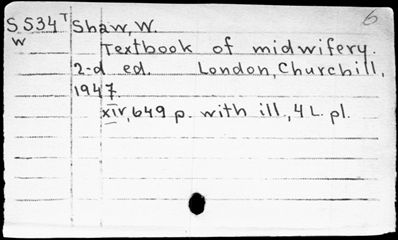 6
S 534ᵀ Shaw, W.
W
Textbook of midwifery.
2-d ed. London, Churchill,
1947.
xiv, 649 p. with ill., 4 L. pl.